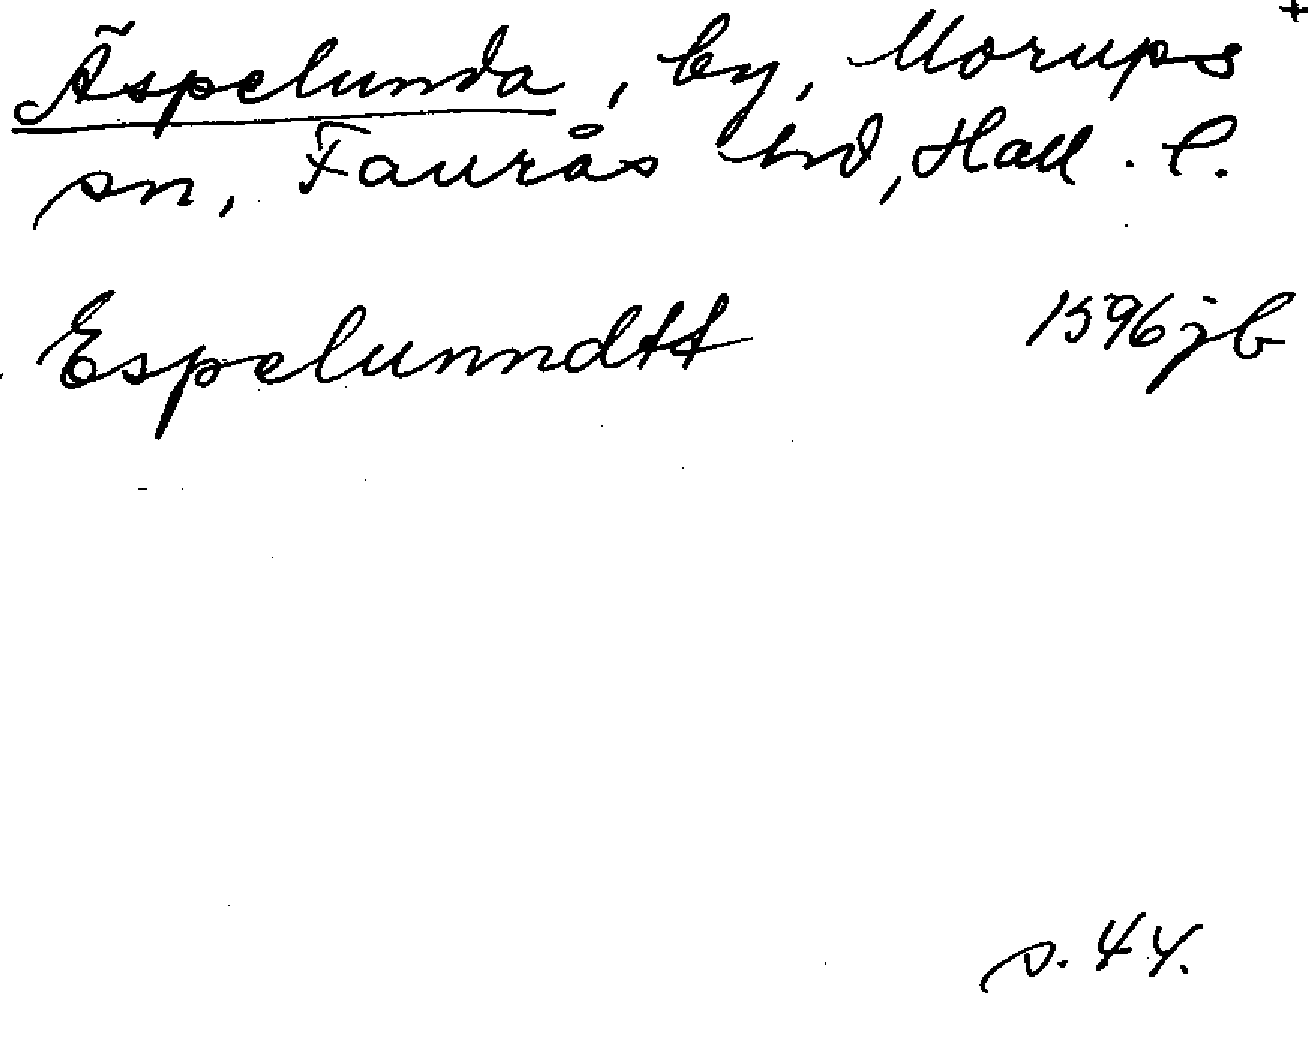 +
Äspelunda, by, Morups
sn, Faurås hd, Hall. l.
Espelunndtt 1596 jb
s. 44.